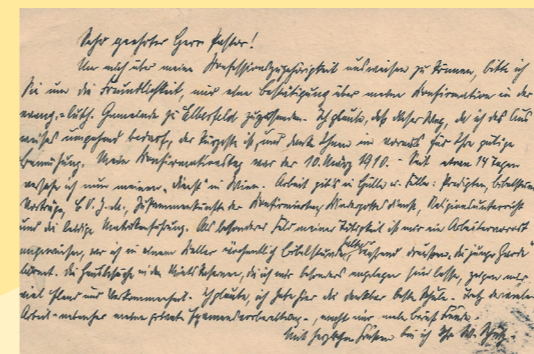 Sehr geehrter Herr Pastor!
Um mich über meine Konfessionszugehörigkeit ausweisen zu können, bitte ich
Sie um die Freundlichkeit, mir eine Bestätigung über meine Konfirmation in der
evang.-luth. Gemeinde zu Elberfeld zuzusenden. Ich glaube, daß dieser Weg, da ich des Aus
weises umgehend bedarf, der kürzeste ist, und danke Ihnen im voraus für Ihre gütige
Bemühung. Mein Konfirmationstag war der 10. März 1910. – Seit etwa 14 Tagen
ich nun meinen „Dienst“ in Wien. Arbeit gibt's in Hülle u. Fülle: Predigten, Bibelstunden
Vorträge, C.V.J.M., Zusammenkünfte der Konfirmierten, Kindergottesdienst, Religionsunterricht
und die leidige Matrikenführung. Als besonderes Feld meiner Tätigkeit ist mir ein Arbeitervorort
angewiesen, wo ich in einem Keller wöchentlich Bibelstunde halte, während draußen „die junge Garde“
lärmt. Die Hausbesuche in den, die ich mir besonders angelegen sein lasse, zeigen mir
viel Elend und Verkommenheit. Ich glaube, ich habe hier die denkbar beste Schule.
Arbeit
Mit herzlichen Grüßen bin ich Ihr W.